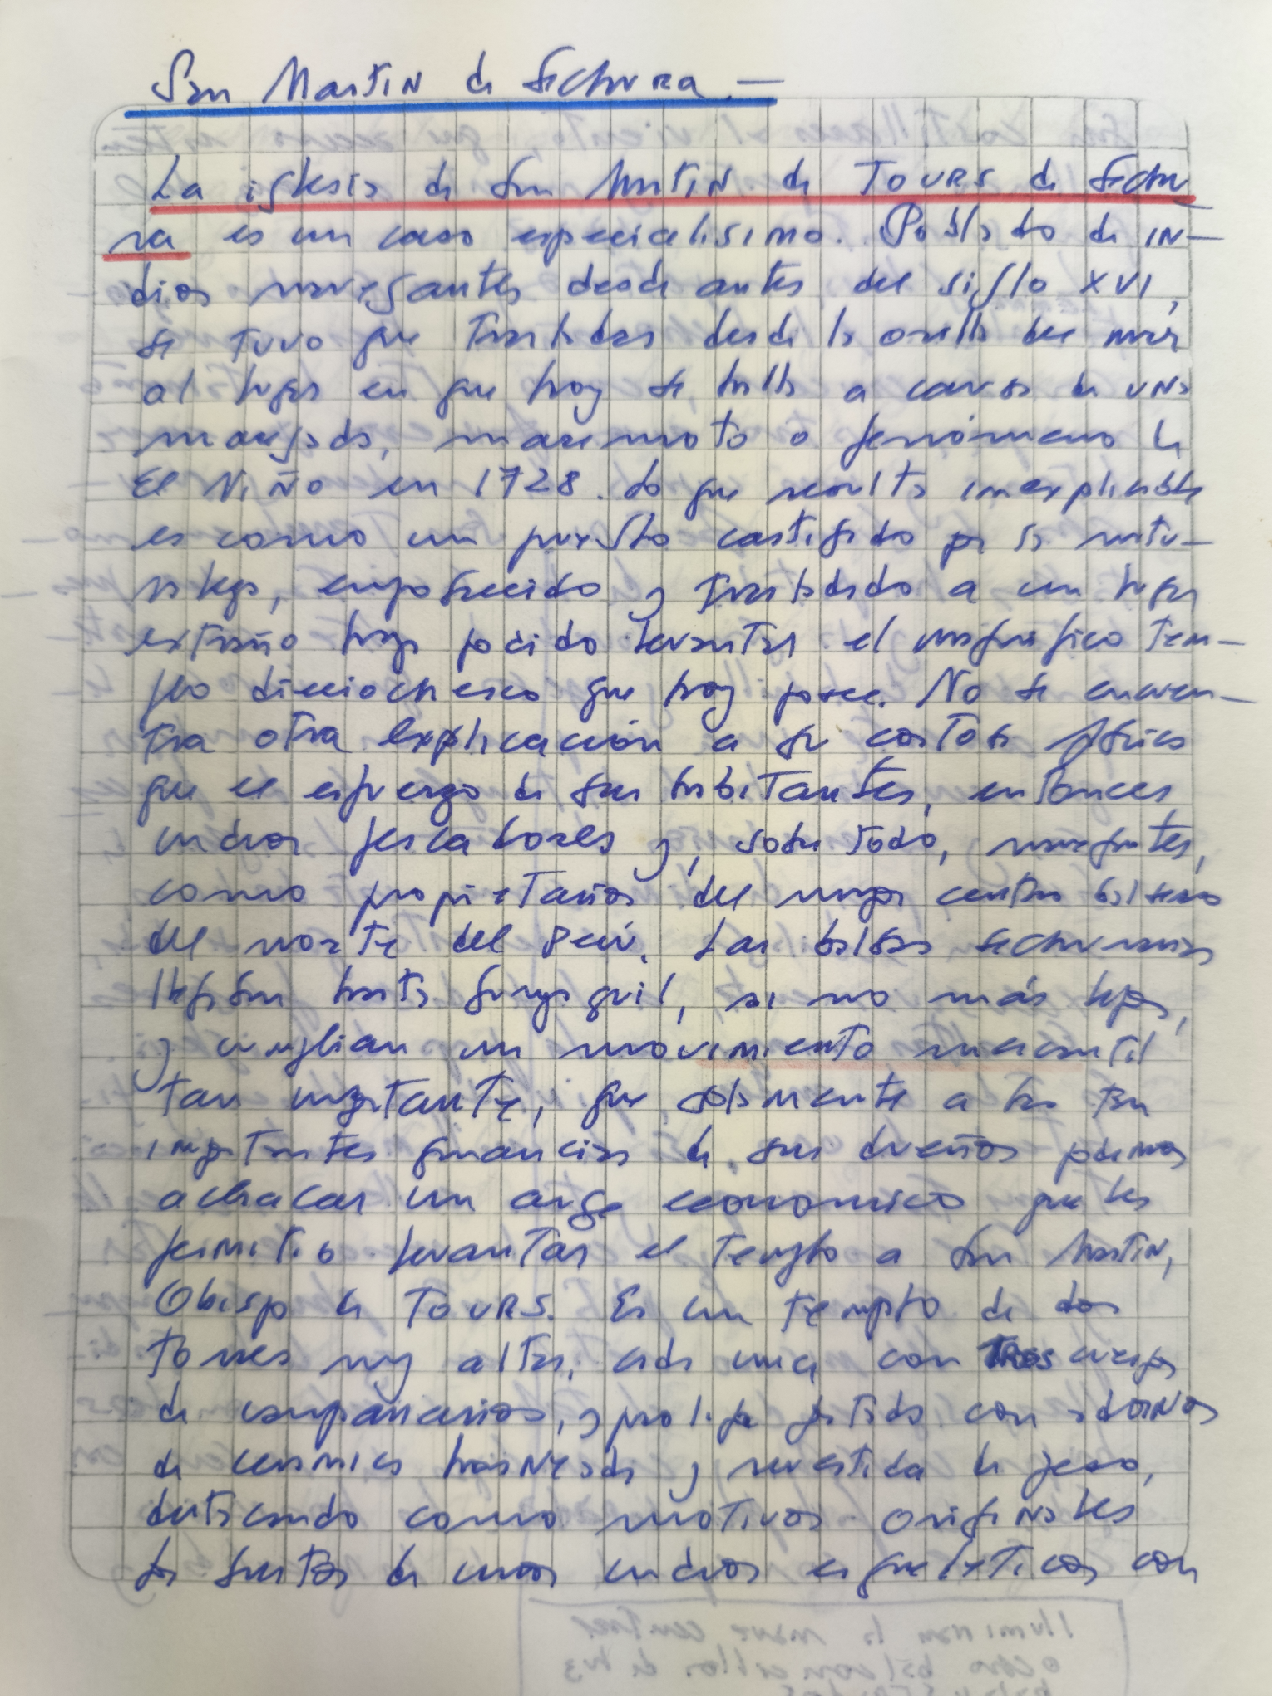 San Martin de Sechura.—
La iglesia de San Martin de Tours de Sechu-
ra es un caso especialisimo. Poblado de in-
dios navegantes desde antes del siglo XVI,
se tuvo que trasladar desde la orilla del mar
al lugar en que hoy se halla a causa de una
marejada, maremoto o fenómeno de
El Niño en 1728. Lo que resulta inexplicable
es como un pueblo castigado por la natu-
raleza, empobrecido y trasladado a un lugar
extraño haya podido levantar el magnífico tem-
plo dieciochesco que hoy posee. No se encuen-
tra otra explicación a su costosa fábrica
que el esfuerzo de sus habitantes, entonces
indios pescadores y, sobre todo, navegantes,
como propietarios del mayor centro balsero
del norte del Perú. Las balsas sechuranas
llegaban hasta Guayaquil, si no más lejos,
y cumplian un movimiento mercantil
tan importante, que solamente a las tan
importantes ganancias de sus dueños podemos
achacar un auge economico que les
permitió levantar el templo a San Martin,
Obispo de Tours. Es un templo de dos
torres muy altas, cada una con tres cuerpos
de campanarios, y prolija portada con adornos
de ceramica horneada y revestida de yeso,
destacando como motivos originales
los bustos de unos indios esqueléticos con